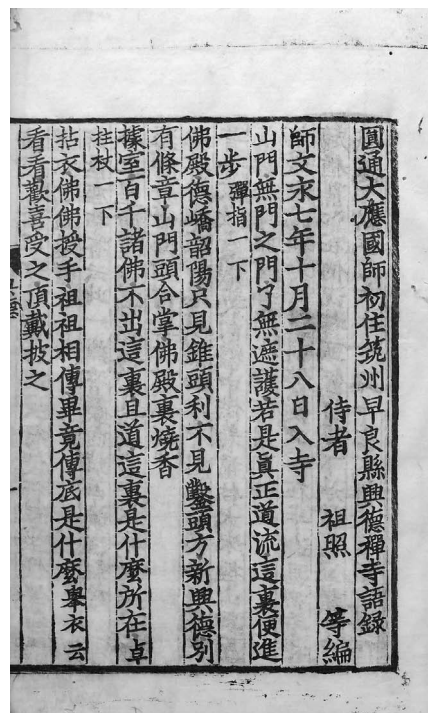 圓通大應國師初住筑州早良縣興德禪寺語錄
侍者　祖照　等編
師文永七年十月二十八日入寺
山門無門之門了無遮護若是眞正道流這裏便進
一步彈指一下
佛殿德嶠韶陽只見錐頭利不見鑿頭方新興德別
有條章山門頭合掌佛殿裏燒香
據室百千諸佛不出這裏且道這裏是什麼所在卓
拄杖一下
拈衣佛佛授手祖祖相傳畢竟傳底是什麼舉衣云
看看歡喜受之頂戴披之